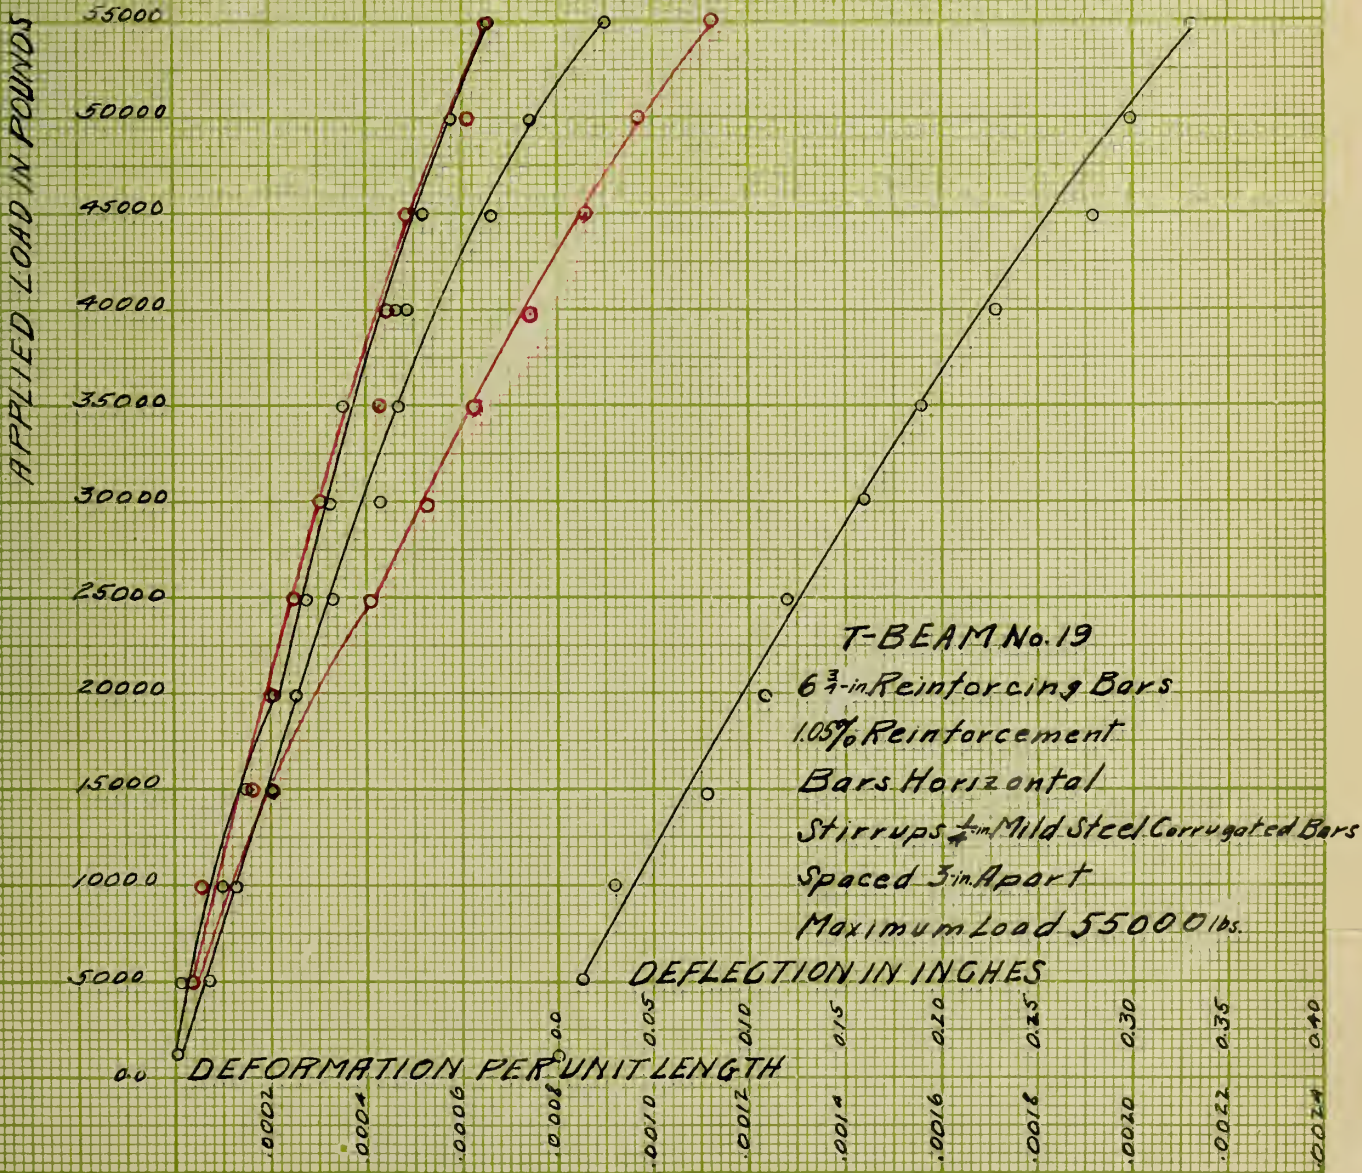 APPLIED LOAD IN POUNDS
55000
50000
45000
40000
35000
30000
25000
20000
15000
10000
5000
0.0
T-BEAM No. 19
6 3/4-in. Reinforcing Bars
1.05% Reinforcement
Bars Horizontal
Stirrups 1/4-in. Mild Steel Corrugated Bars
Spaced 3-in. Apart
Maximum Load 55000 lbs.
DEFLECTION IN INCHES
0.0 0.05 0.10 0.15 0.20 0.25 0.30 0.35 0.40
DEFORMATION PER UNIT LENGTH
.0002 .0004 .0006 .0008 .0010 .0012 .0014 .0016 .0018 .0020 .0022 .0024